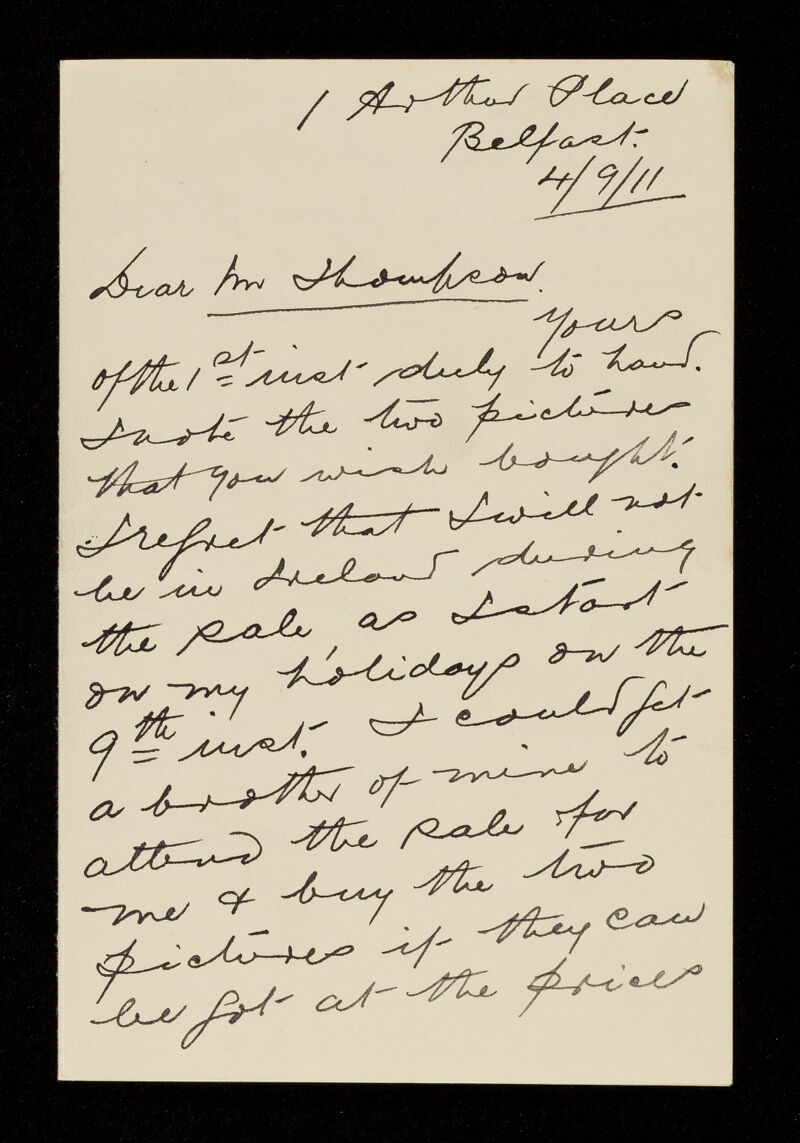 1 Arthur Place
Belfast.
4/9/11
Dear Mr Thompson.
Yours
of the 1st inst duly to hand.
I note the two pictures
that you wish bought.
I regret that I will not
be in Ireland during
the sale, as I start
on my holidays on the
9th inst. I could get
a brother of mine to
attend the sale for
me & buy the two
pictures if they can
be got at the prices